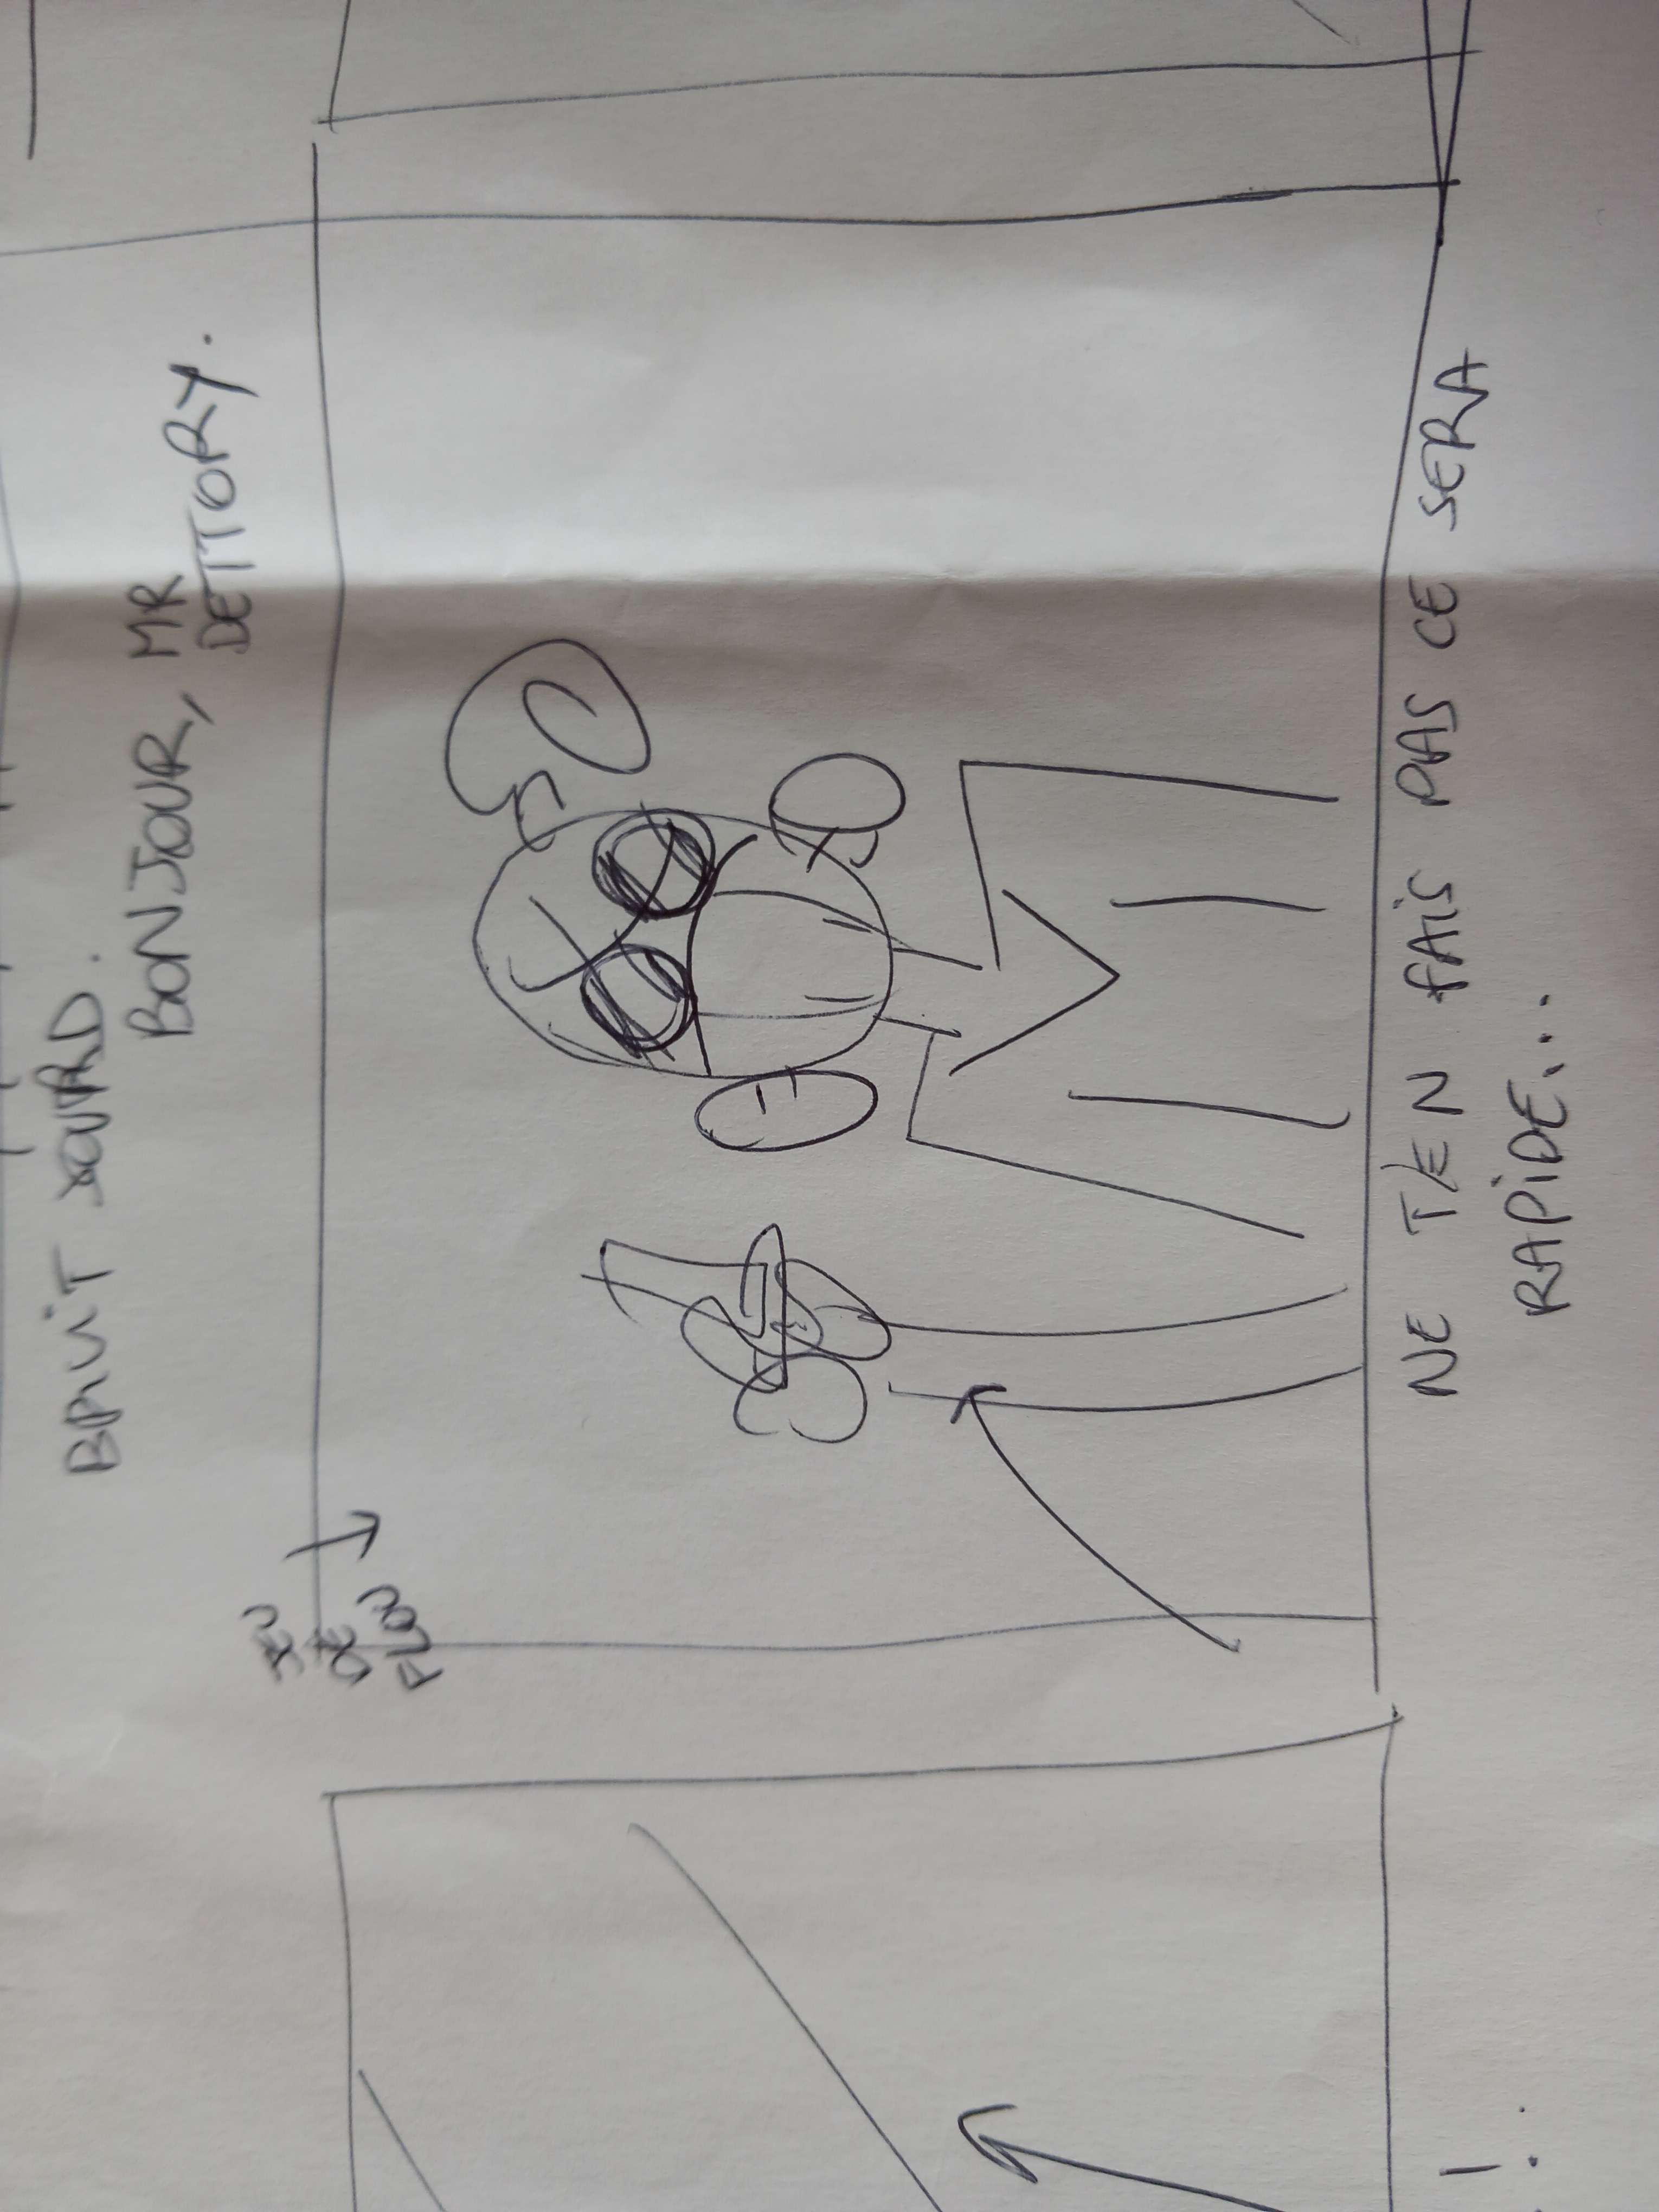 BRUIT SOURD.
BONJOUR, MR
DETTORY.
JEU
DE
FLOU
NE T'EN FAIS PAS CE SERA
RAPIDE...
!